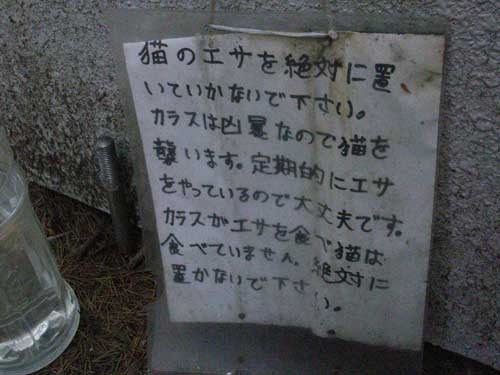 猫のエサを絶対に置
いていかないで下さい。
カラスは凶暴なので猫を
襲います。定期的にエサ
をやっているので大丈夫です。
カラスがエサを食べ猫は
食べていません。絶対に
置かないで下さい。